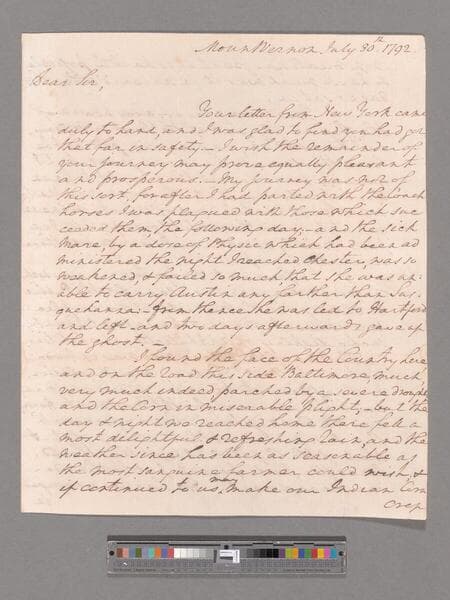 Mount Vernon July 30th 1792
Dear Sir,
Your letter from New York came
duly to hand, and I was glad to find you had got
that far in safety. – I wish the remainder of
your journey may prove equally pleasant
and prosperous. – My journey was not of
this sort, for after I had parted with the Coach
horses I was plagued with those which suc
ceeded them, the following day; – and the sick
Mare, by a dose of Physic which had been ad
ministered the night I reached Chester, was so
weakened, & failed so much that she was un-
able to carry Austin any farther than Sus
quehanna: – from thence she was led to Hartford
and left – and two days afterwards gave up
the ghost. –
I found the face of the Country here,
and on the road this side Baltimore, much,
very much indeed parched by a severe drought
and the Corn in miserable plight; – but the
day & night we reached home there fell a
most delightful & refreshing rain, and the
weather since has been as seasonable as
the most sanguine farmer could wish, &
if continued to us may make our Indian Corn
Crop